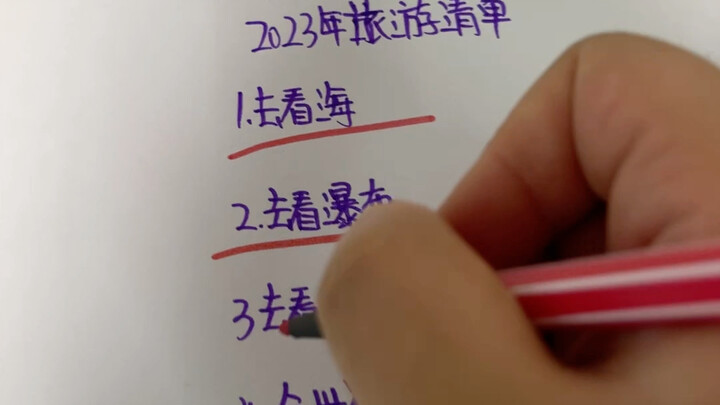 2023年旅游清单
1.去看海
2.去看瀑布
3去看